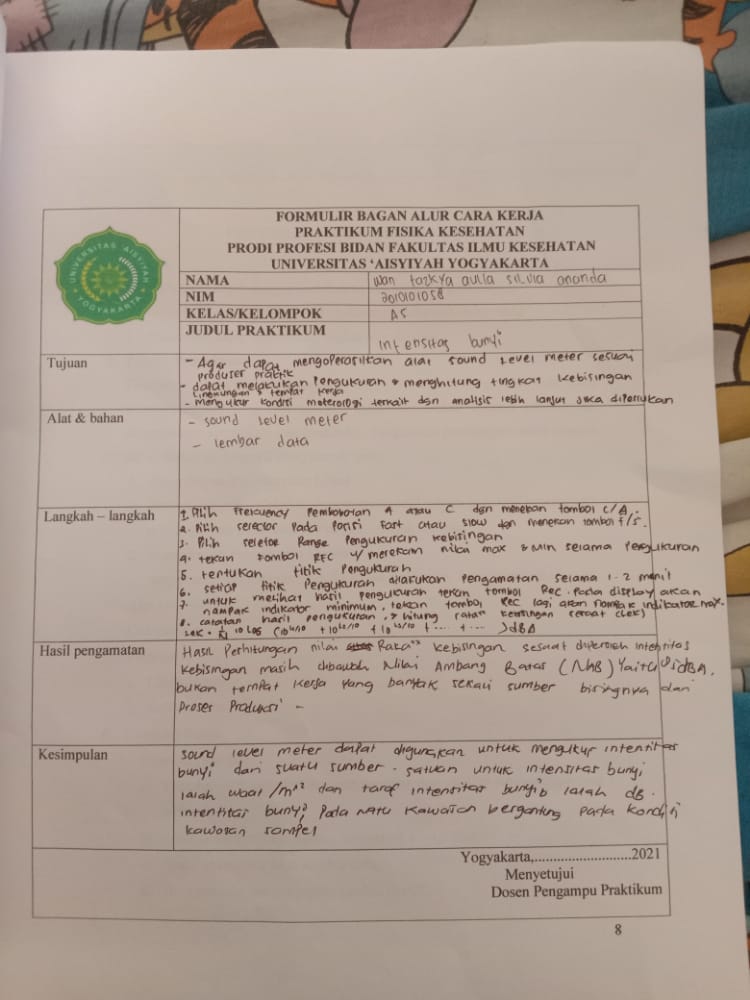 FORMULIR BAGAN ALUR CARA KERJA
PRAKTIKUM FISIKA KESEHATAN
PRODI PROFESI BIDAN FAKULTAS ILMU KESEHATAN
UNIVERSITAS 'AISYIYAH YOGYAKARTA
UNIVERSITAS 'AISYIYAH
YOGYAKARTA
NAMA wan tazkya aulia silvia ananda
NIM 2010101058
KELAS/KELOMPOK A5
JUDUL PRAKTIKUM
intensitas bunyi
Tujuan
- Agar dapat mengoperasikan alat sound level meter sesuai
produser praktik
- dapat melakukan pengukuran & menghitung tingkat kebisingan
lingkungan & tempat kerja
- mengukur kondisi meterologi terkait dgn analisis lebih lanjut jika diperlukan
Alat & bahan
- sound level meter
- lembar data
Langkah – langkah
1. Pilih frekuency pembobotan A atau C dgn menekan tombol C/A.
2. Pilih selector pada posisi fast atau slow dgn menekan tombol F/S.
3. Pilih seletor Range pengukuran kebisingan
4. tekan tombol REC u/ merekam nilai max & Min selama pengukuran
5. tentukan titik pengukuran
6. setiap titik pengukuran dilakukan pengamatan selama 1-2 menit
7. untuk melihat hasil pengukuran tekan tombol Rec. Pada display akan
nampak indikator minimum, tekan tombol Rec lagi akan nampak indikator max.
8. catatan hasil pengukuran, & hitung rataan kebisingan sesaat (Lek)
Hasil pengamatan
Hasil Perhitungan nilai Rata" kebisingan sesaat diperoleh intentitas
kebisingan masih dibawah Nilai Ambang Batas (NAB) yaitu dBA.
bukan tempat kerja yang banyak sekali sumber bisingnya dari
proses produksi -
Kesimpulan
sound level meter dapat digunakan untuk mengukur intentitas
bunyi dari suatu sumber. satuan untuk intensitas bunyi
ialah waat/m^2 dan taraf intensitas bunyi ialah dB.
intentitas bunyi pada kawasan bergantung pada kondisi
kawasan sampel
Yogyakarta,..........................2021
Menyetujui
Dosen Pengampu Praktikum
8